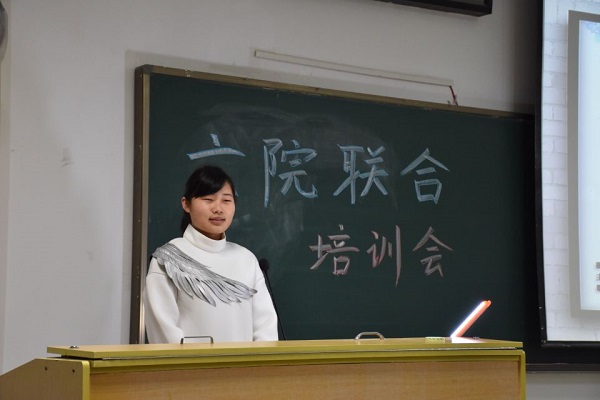 院联合
培训会